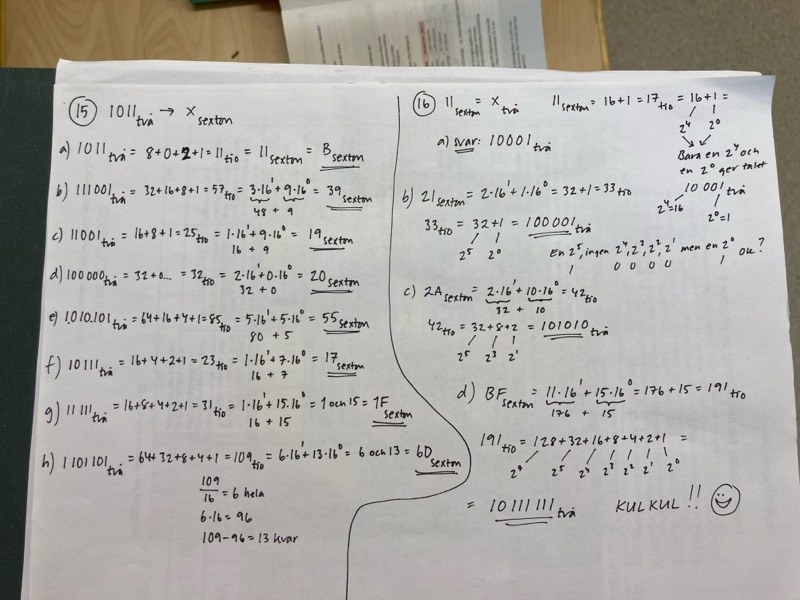 15 1011två → X sexton
a) 1011två = 8+0+2+1 = 11tio = 11sexton = Bsexton
b) 111001två = 32+16+8+1 = 57tio = 3·16¹+9·16⁰ = 39sexton
48 + 9
c) 11001två = 16+8+1 = 25tio = 1·16¹+9·16⁰ = 19sexton
16 + 9
d) 100000två = 32+0... = 32tio = 2·16¹+0·16⁰ = 20sexton
32 + 0
e) 1.010.101två = 64+16+4+1 = 85tio = 5·16¹+5·16⁰ = 55sexton
80 + 5
f) 10111två = 16+4+2+1 = 23tio = 1·16¹+7·16⁰ = 17sexton
16 + 7
g) 11 111två = 16+8+4+2+1 = 31tio = 1·16¹+15·16⁰ = 1 och 15 = 1Fsexton
16 + 15
h) 1101101två = 64+32+8+4+1 = 109tio = 6·16¹+13·16⁰ = 6 och 13 = 6Dsexton
109
16 = 6 hela
6·16 = 96
109-96 = 13 kvar
16 11sexton = X två 11sexton = 16+1 = 17tio = 16+1 =
2⁴ 2⁰
a) svar: 10001två
Bara en 2⁴ och
en 2⁰ ger talet
10 001 två
2⁴=16
2⁰=1
b) 21sexton = 2·16¹+1·16⁰ = 32+1 = 33tio
33tio = 32+1 = 100 001två
2⁵ 2⁰
En 2⁵, ingen 2⁴, 2³, 2², 2¹ men en 2⁰ ok?
1 0 0 0 0 1
c) 2Asexton = 2·16¹+10·16⁰ = 42tio
32 + 10
42tio = 32+8+2 = 101010två
2⁵ 2³ 2¹
d) BFsexton = 11·16¹+15·16⁰ = 176+15 = 191tio
176 + 15
191tio = 128+32+16+8+4+2+1 =
2⁷ 2⁵ 2⁴ 2³ 2² 2¹ 2⁰
= 10 111 111två KUL KUL !!